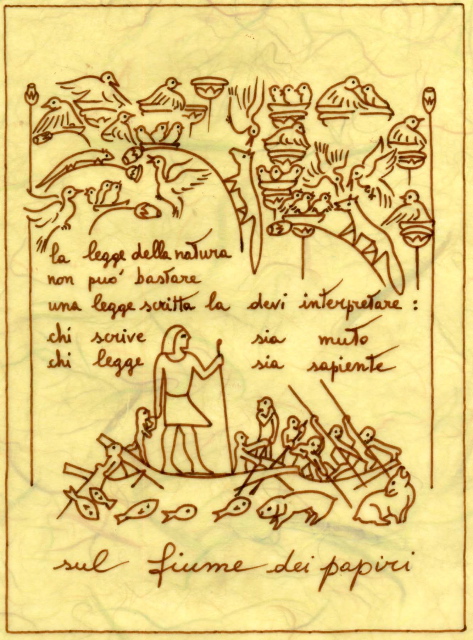 la legge della natura
non puo' bastare
una legge scritta la devi interpretare :
chi scrive sia muto
chi legge sia sapiente
sul fiume dei papiri